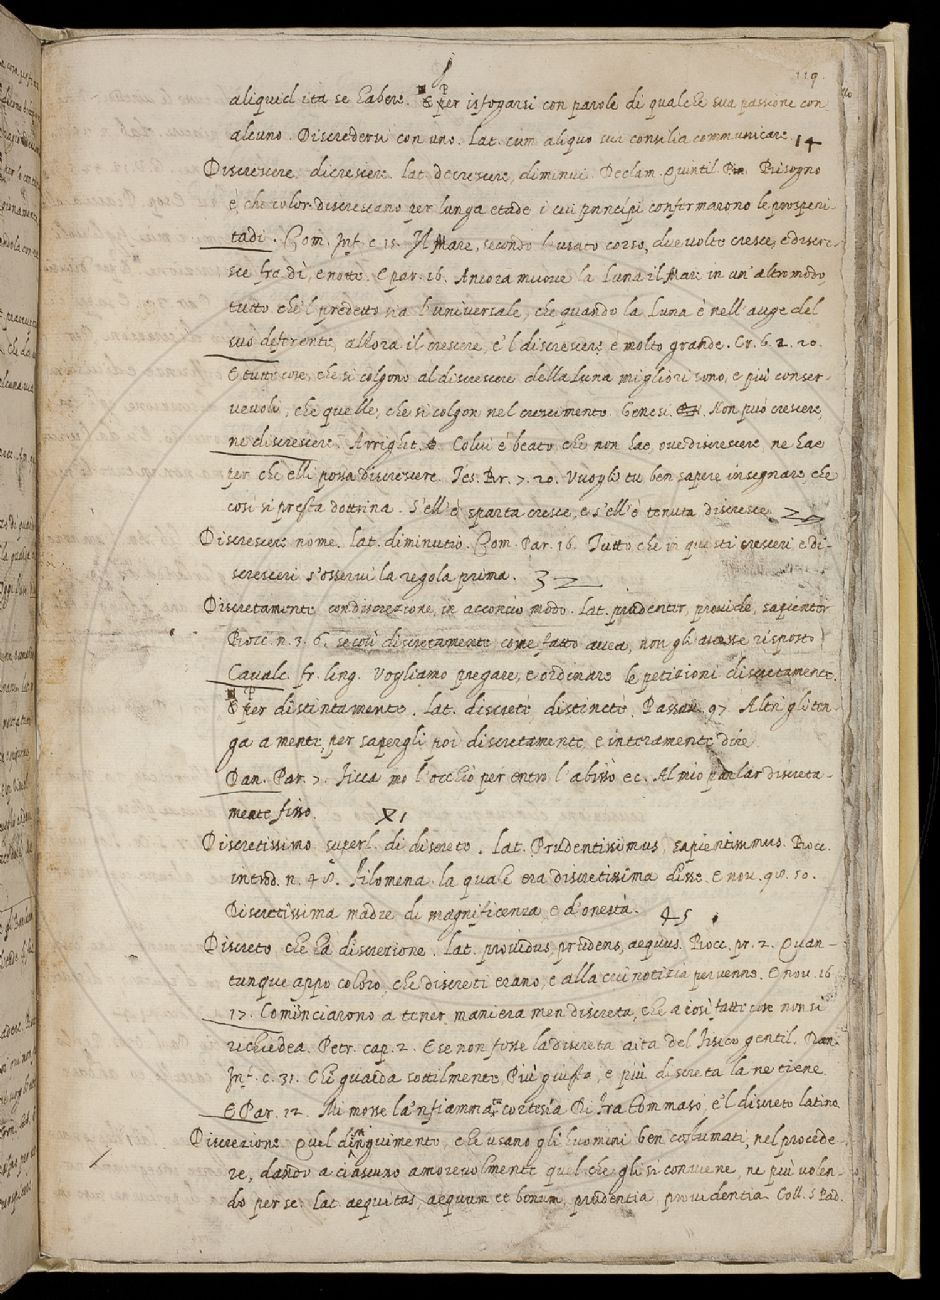 119
aliquid ita se habere. ¶ E per isfogarsi con parole di qualche sua passione con
alcuno. Discredersi con uno. lat. cum aliquo sua consilia communicare. 14
Discrescere, dicrescere. lat. decrescere, diminui. Declam. Quintil. Bisogno
è, che color discrescano per lunga etade i cui principi confirmarono le prosperi-
tadi. Com. Inf. c. 15. Il Mare, secondo l'usato corso, due volte cresce, e discre-
sce fra dì, e notte. E par. 16. Ancora muove la Luna il Mare in un altro modo,
tutto che 'l predetto sia l'universale, che quando la Luna è nell'auge del
suo deferente, allora il crescere, e 'l discrescere è molto grande. Cr. 6. 2. 20.
E tutte cose, che si colgono al discrescere della Luna migliori sono, e più conser-
vevoli, che quelle, che si colgon nel crescimento. Genesi. Non può crescere,
ne discrescere. Arrighet. Colui è beato che non hae ove discrescere, ne hae
per che elli possa discrescere. Tes. Br. 7. 20. Vuogli tu ben sapere insegnare, che
così si presta dottrina. S'ell'è sparta cresce, e s'ell'è tenuta discresce. 29
Discrescere nome. lat. diminutio. Com. Par. 16. Tutto che in questi cresceri e di-
scresceri s'osservi la regola prima. 32
Discretamente con discrezione, in acconcio modo. lat. prudenter, provide, sapienter
Bocc. n. 3. 6. se così discretamente come fatto avea, non gli avesse risposto
Cavalc. fr. ling. Vogliamo pregare, e ordinare le petizioni discretamente.
¶ E per distintamente. lat. discrete distincte. Passav. 97. Altri gli ten-
ga a mente, per sapergli poi discretamente e interamente dire
Dan. Par. 7. Ficca mo l'occhio per entro l'abisso ec. Al mio parlar discreta-
mente fisso. 41
Discretissimo superl. di discreto. lat. Prudentissimus, sapientissimus. Bocc.
introd. n. 48. Filomena la quale era discretissima disse. E nov. 98. 50.
Discretissima madre di magnificenza, e d'onestà. 45
Discreto, che ha discrezione. lat. providus, prudens, aequus. Bocc. pr. 2. Quan-
tunque appo coloro, che discreti erano, e alla cui notizia pervenne. E nov. 16
17. Cominciarono a tener maniera men discreta, che a così fatte cose non si
richiedea. Petr. cap. 2. E se non fosse la discreta aita del Fisico gentil. Dan.
Inf. c. 31. Chi guarda sottilmente, Più giusta, e più discreta la ne tiene
E Par. 12. Mi mosse la 'nfiammata cortesia Di Fra Tommaso, e 'l discreto latino
Discrezione. Quel distinguimento, che usano gli huomini ben costumati, nel procede-
re, dando a ciascuno amorevolmente quel che gli si conviene, ne più volen-
do per se. lat. aequitas, aequum et bonum, prudentia, providentia. Coll. S. Pad.